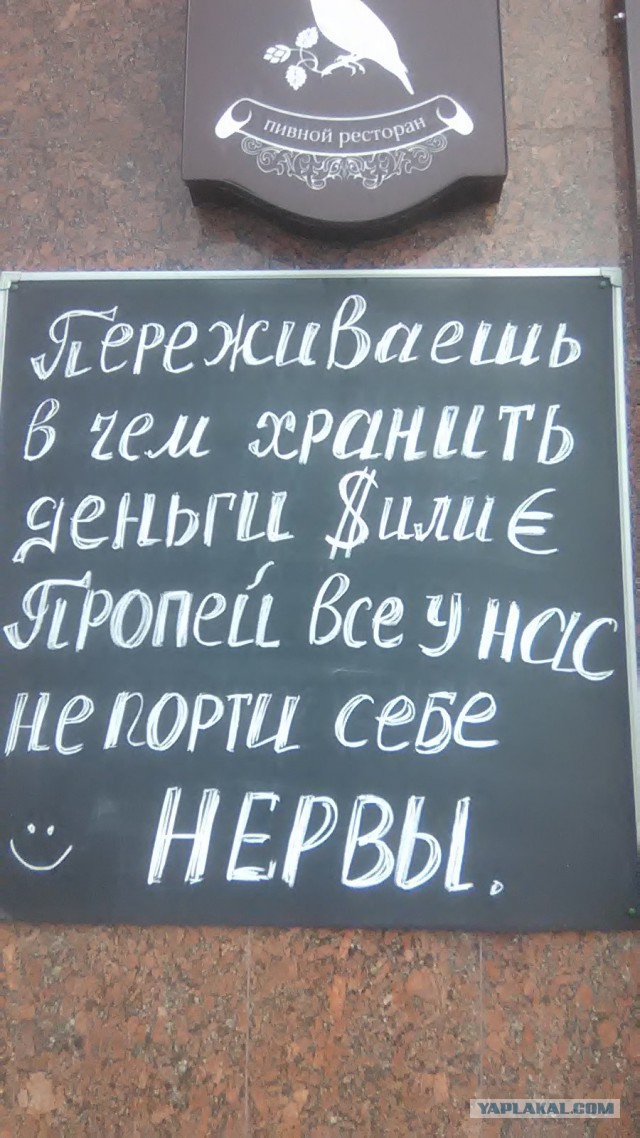 пивной ресторан
Переживаешь
в чем хранить
деньги $ или €
Пропей все у нас
не порти себе
НЕРВЫ.
YAPLAKAL.COM